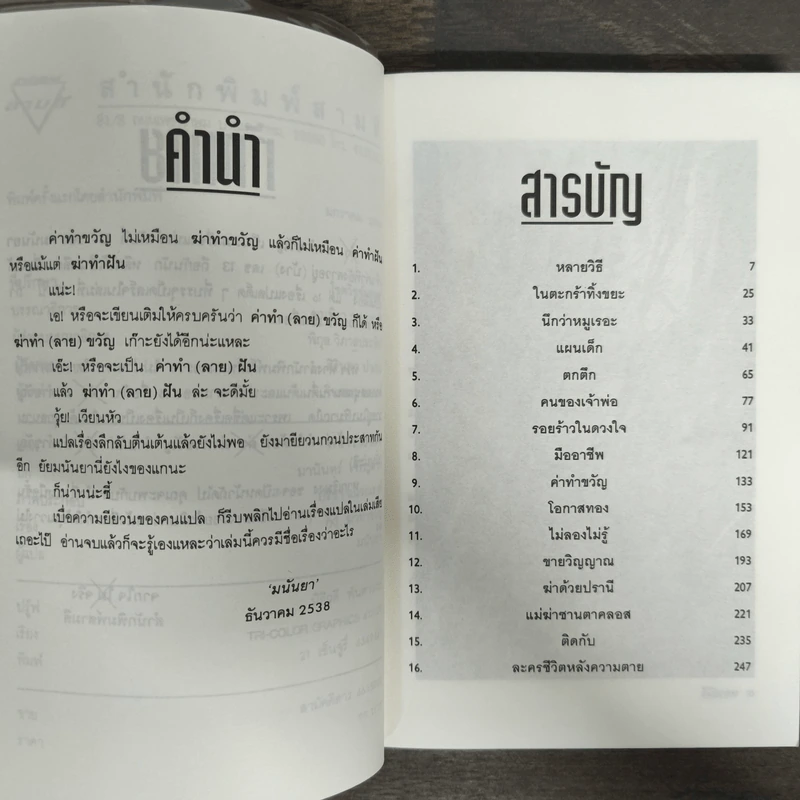 คำนำ
ค่าทำขวัญ ไม่เหมือน ฆ่าทำขวัญ แล้วก็ไม่เหมือน ค่าทำฝัน
หรือแม้แต่ ฆ่าทำฝัน
แน่ะ!
เอ! หรือจะเขียนเติมให้ครบครันว่า ค่าทำ (ลาย) ขวัญ ก็ได้ หรือ
ฆ่าทำ (ลาย) ขวัญ เก๊าะยังได้อีกน่ะแหละ
เอ๊ะ! หรือจะเป็น ค่าทำ (ลาย) ฝัน
แล้ว ฆ่าทำ (ลาย) ฝัน ล่ะ จะดีมั้ย
วุ้ย! เวียนหัว
แปลเรื่องลึกลับตื่นเต้นแล้วยังไม่พอ ยังมายียวนกวนประสาทกัน
อีก ยัยมนันยานี่ยังไงของแกนะ
ก็น่านน่ะซี้
เบื่อความยียวนของคนแปล ก็รีบพลิกไปอ่านเรื่องแปลในเล่มเสีย
เถอะไป๊ อ่านจบแล้วก็จะรู้เองแหละว่าเล่มนี้ควรมีชื่อเรื่องว่าอะไร
'มนันยา'
ธันวาคม 2538
สารบัญ
1. หลายวิธี 7
2. ในตะกร้าทิ้งขยะ 25
3. นึกว่าหมูเรอะ 33
4. แผนเด็ก 41
5. ตกตึก 65
6. คนของเจ้าพ่อ 77
7. รอยร้าวในดวงใจ 91
8. มืออาชีพ 121
9. ค่าทำขวัญ 133
10. โอกาสทอง 153
11. ไม่ลองไม่รู้ 169
12. ขายวิญญาณ 193
13. ฆ่าด้วยปรานี 207
14. แม่ฆ่าซานตาคลอส 221
15. ติดกับ 235
16. ละครชีวิตหลังความตาย 247